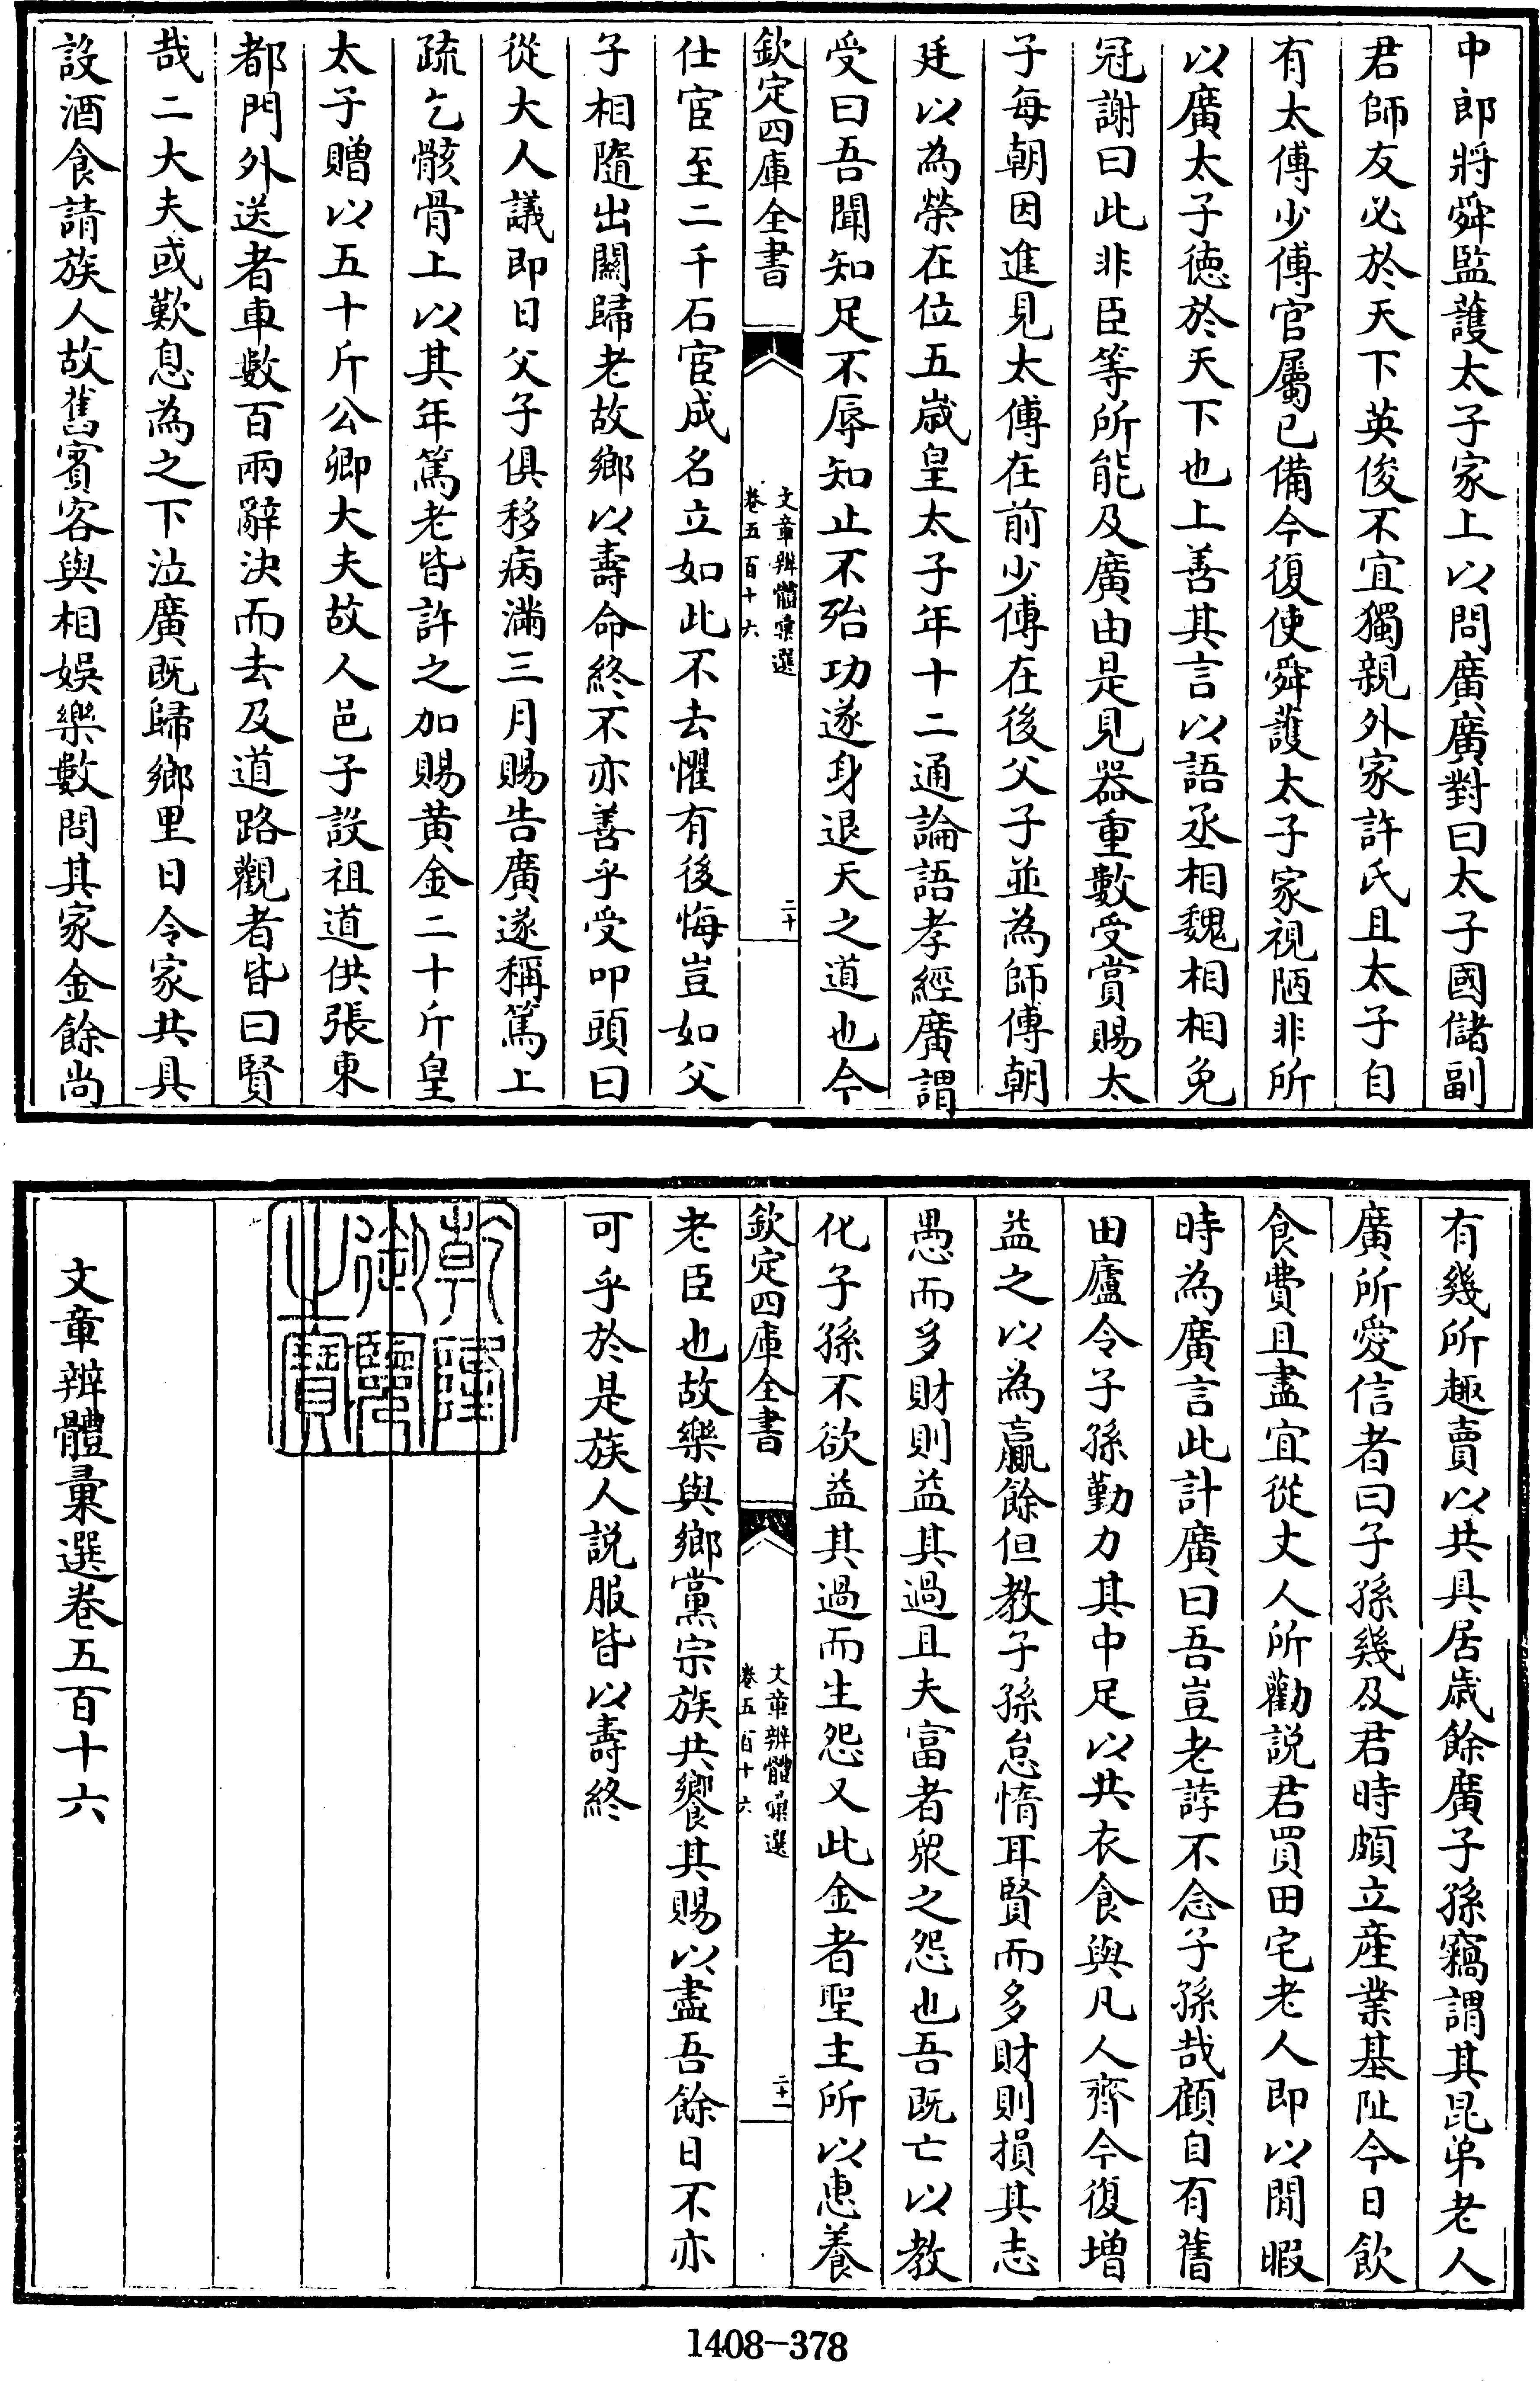 中郎將舜監護太子家上以問廣廣對曰太子國儲副
君師友必於天下英俊不宜獨親外家許氏且太子自
有太傅少傅官屬已備今復使舜護太子家視陋非所
以廣太子徳於天下也上善其言以語丞相魏相相免
冠謝曰此非臣等所能及廣由是見器重數受賞賜太
子每朝因進見太傅在前少傅在後父子並為師傅朝
廷以為榮在位五歲皇太子年十二通論語孝經廣謂
受曰吾聞知足不辱知止不殆功遂身退天之道也今
欽定四庫全書
文章辨體彙選
卷五百十六
二十
仕宦至二千石宦成名立如此不去懼有後悔豈如父
子相隨出關歸老故鄉以壽命終不亦善乎受叩頭曰
從大人議即日父子俱移病滿三月賜告廣遂稱篤上
疏乞骸骨上以其年篤老皆許之加賜黃金二十斤皇
太子贈以五十斤公卿大夫故人邑子設祖道供張東
都門外送者車數百兩辭決而去及道路觀者皆曰賢
哉二大夫或歎息為之下泣廣既歸鄉里日令家共具
設酒食請族人故舊賓客與相娛樂數問其家金餘尚
有幾所趣賣以共具居歲餘廣子孫竊謂其昆弟老人
廣所愛信者曰子孫幾及君時頗立產業基阯今日飲
食費且盡宜從丈人所勸説君買田宅老人即以閒暇
時為廣言此計廣曰吾豈老誖不念子孫哉顧自有舊
田廬令子孫勤力其中足以共衣食與凡人齊今復增
益之以為贏餘但教子孫怠惰耳賢而多財則損其志
愚而多財則益其過且夫富者衆之怨也吾既亡以教
化子孫不欲益其過而生怨又此金者聖主所以惠養
欽定四庫全書
文章辨體彙選
卷五百十六
二十一
老臣也故樂與鄉黨宗族共饗其賜以盡吾餘日不亦
可乎於是族人説服皆以壽終
乾隆御覽之寶
文章辨體彙選卷五百十六
1408-378